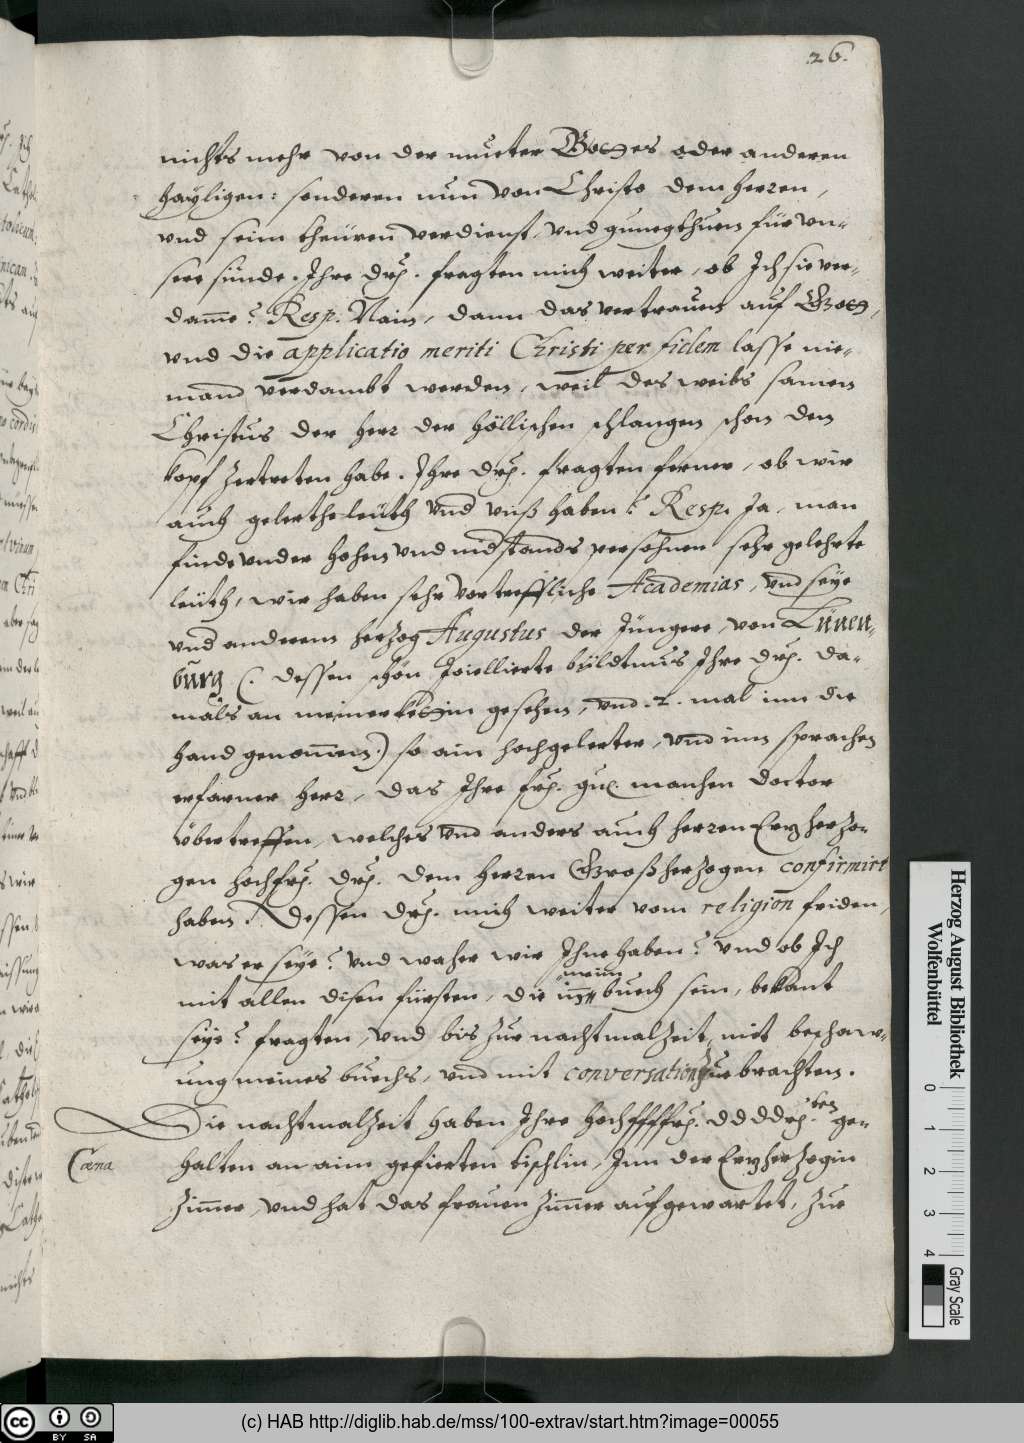 .26.
nichts mehr von der muetter Gottes oder anderen
hayligen: sonderen nun von Christo dem herren,
vnd seim theüren verdienst, vnd gnuogthuen für vn-
sere sünde. Ihre Drl. fragten mich weiter, ob Ich sie ver-
dam̄e? Resp. Nain, dann das vertrauen auf Gott,
vnd die applicatio meriti Christi per fidem lasse nie-
mand verdambt werden, weil des weibs samen
Christus der herr der höllischen schlangen schon den
kopf zertreten habe. Ihre Drl. fragten ferner, ob wir
auch gelerthe leüth vnd vnß haben? Resp. Ja, man
finde vnder hohen vnd nidstands persohnen sehr gelehrte
leüth, wir haben sehr vortreffliche Academias, vnd seye
vnd anderem herzog Augustus der Jüngere, von Lünen-
burg (. dessen schön Joiellierte bildtnus Ihre Drl. da-
mals an meiner kettin gesehen, vnd .2. mal inn die
hand genom̄en.) so ain hochgelerter, vnd inn sprachen
erfarner herr, das Ihre frl. gn. manchen doctor
übertreffen, welches vnd anders auch herren Erzherzo-
gen hochfrl. Drl. dem herren Großherzogen confirmirt
haben. Dessen Drl. mich weiter vom religion friden,
was er seye? vnd waher wir Ihne haben? vnd ob Ich
mit allen disen fürsten, die inn meim buech sein, bekant
seye? fragten, vnd bis zur nachtmalzeit, mit beschaw-
ung meines buechs, vnd mit conversation zue brachten.
Die nachtmalzeit haben Ihre hochffffrl. ddddrl.ten ge-
Cœna
halten an aim gefierten tischlin, Inn der Erzherzogin
Zim̄er, vnd hat das frauen Zim̄er aufgewartet, Zur
Herzog August Bibliothek
Wolfenbüttel
0 1 2 3 4
Gray Scale
cc BY SA
(c) HAB http://diglib.hab.de/mss/100-extrav/start.htm?image=00055